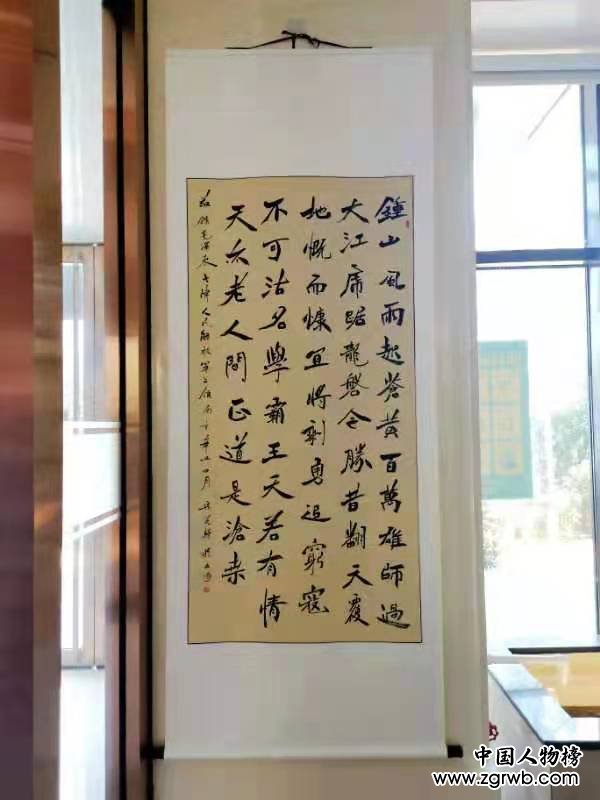 鍾山風雨起蒼黃百萬雄師過
大江虎踞龍盤今勝昔翻天覆
地慨而慷宜將剩勇追窮寇
不可沽名學霸王天若有情
天亦老人間正道是滄桑
錄毛澤東七律人民解放軍占領南京
中国人物榜
www.zgrwb.com